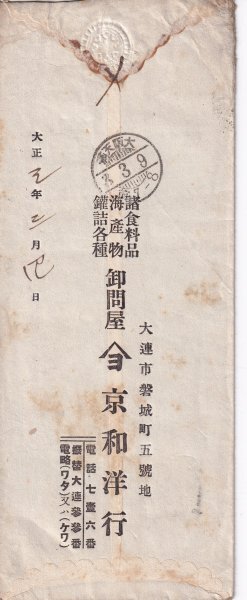 大連市磐城町五號地
諸食料品
海產物
罐詰各種
卸問屋
ヨ 京和洋行
電話 七壹六番
振替大連參參番
電略(ワタ)又ハ(ケワ)
大正三年三月 日
3.3.9